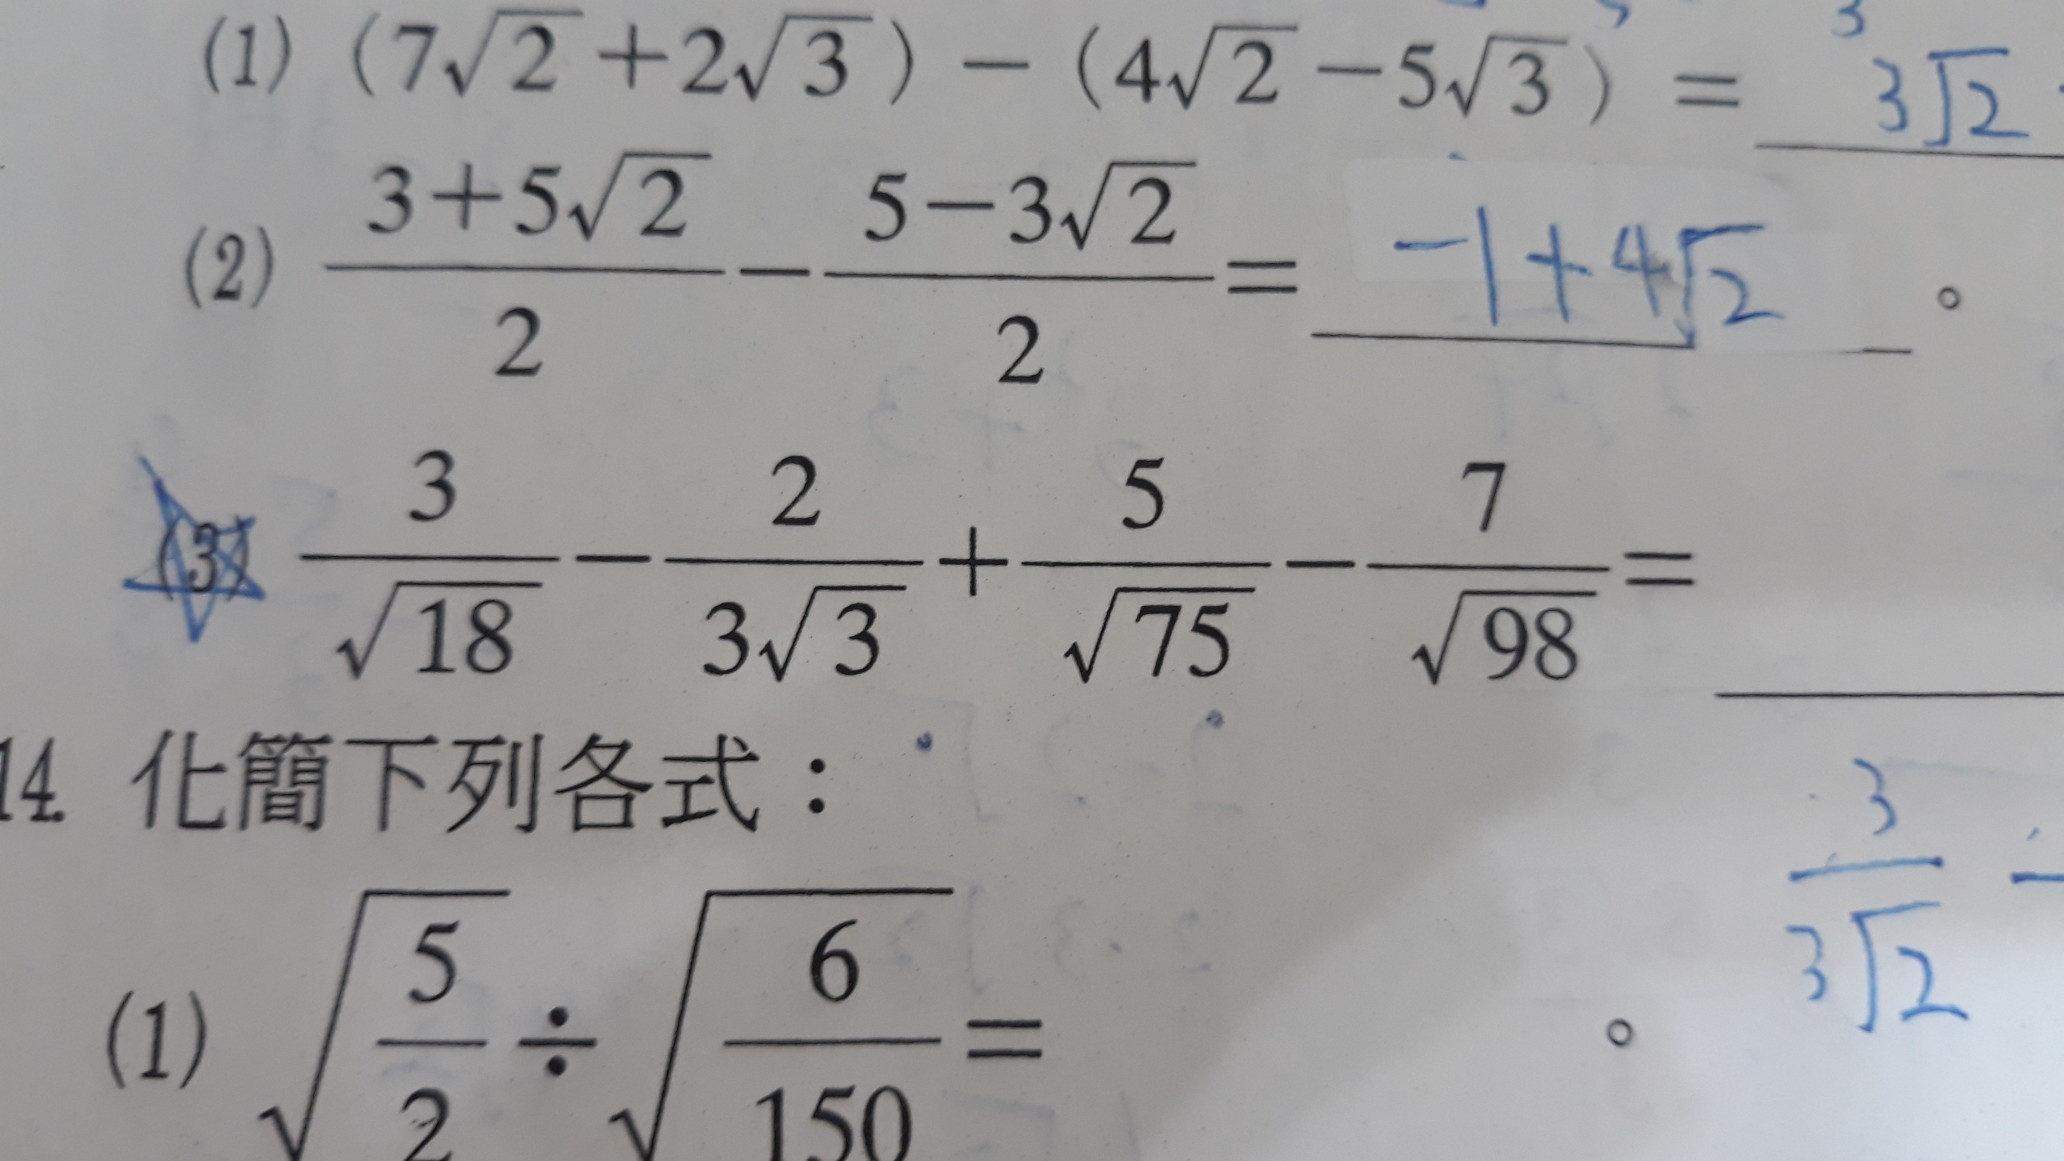 (1) (7√2+2√3)-(4√2-5√3)= 3√2
(2) (3+5√2)/2 - (5-3√2)/2 = -1+4√2 。
(3) 3/√18 - 2/(3√3) + 5/√75 - 7/√98 =
14. 化簡下列各式：
3/(3√2) -
(1) √(5/2) ÷ √(6/150) = 。